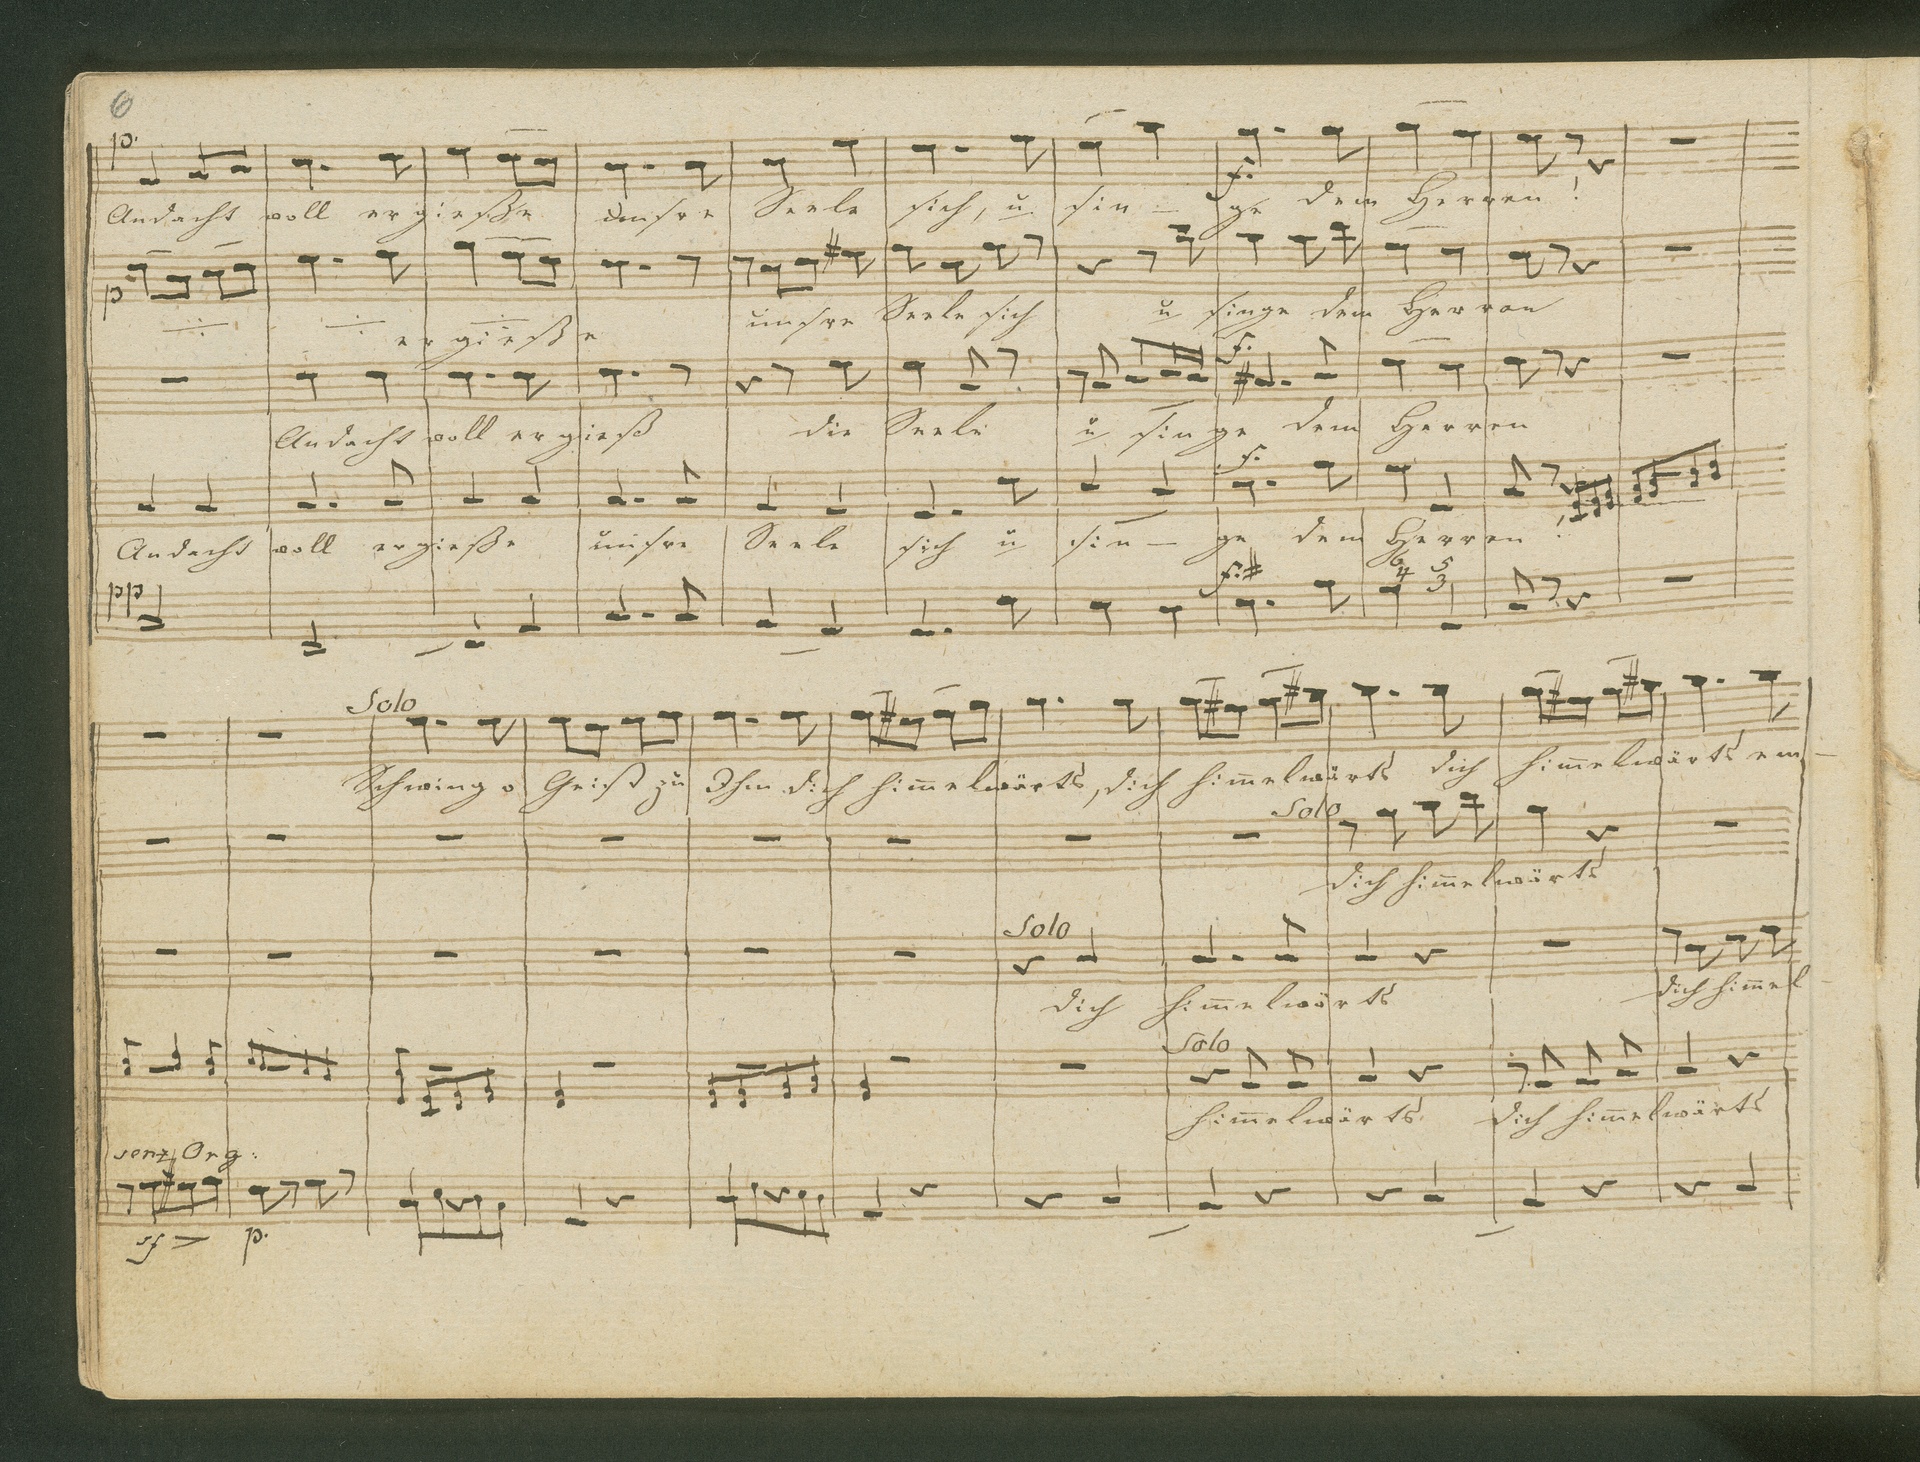 6
p.
Andacht voll ergieße unsre Seele sich, u. sin - ge dem Herren!
f:
p
ergieße unsre Seele sich u singe dem Herren
f:
Andacht voll ergieß die Seele u singe dem Herren
f.
Andacht voll ergieße unsre Seele sich u sin - ge dem Herren!
pp f:# 6 5
4 3
Solo
Schwing o Geist zu Ihm dich him̅elwärts, dich him̅elwärts dich him̅elwärts em-
Solo
dich him̅elwärts
Solo
dich him̅elwärts dich him̅el-
Solo
him̅elwärts dich him̅elwärts
senz Org:
sf > p.